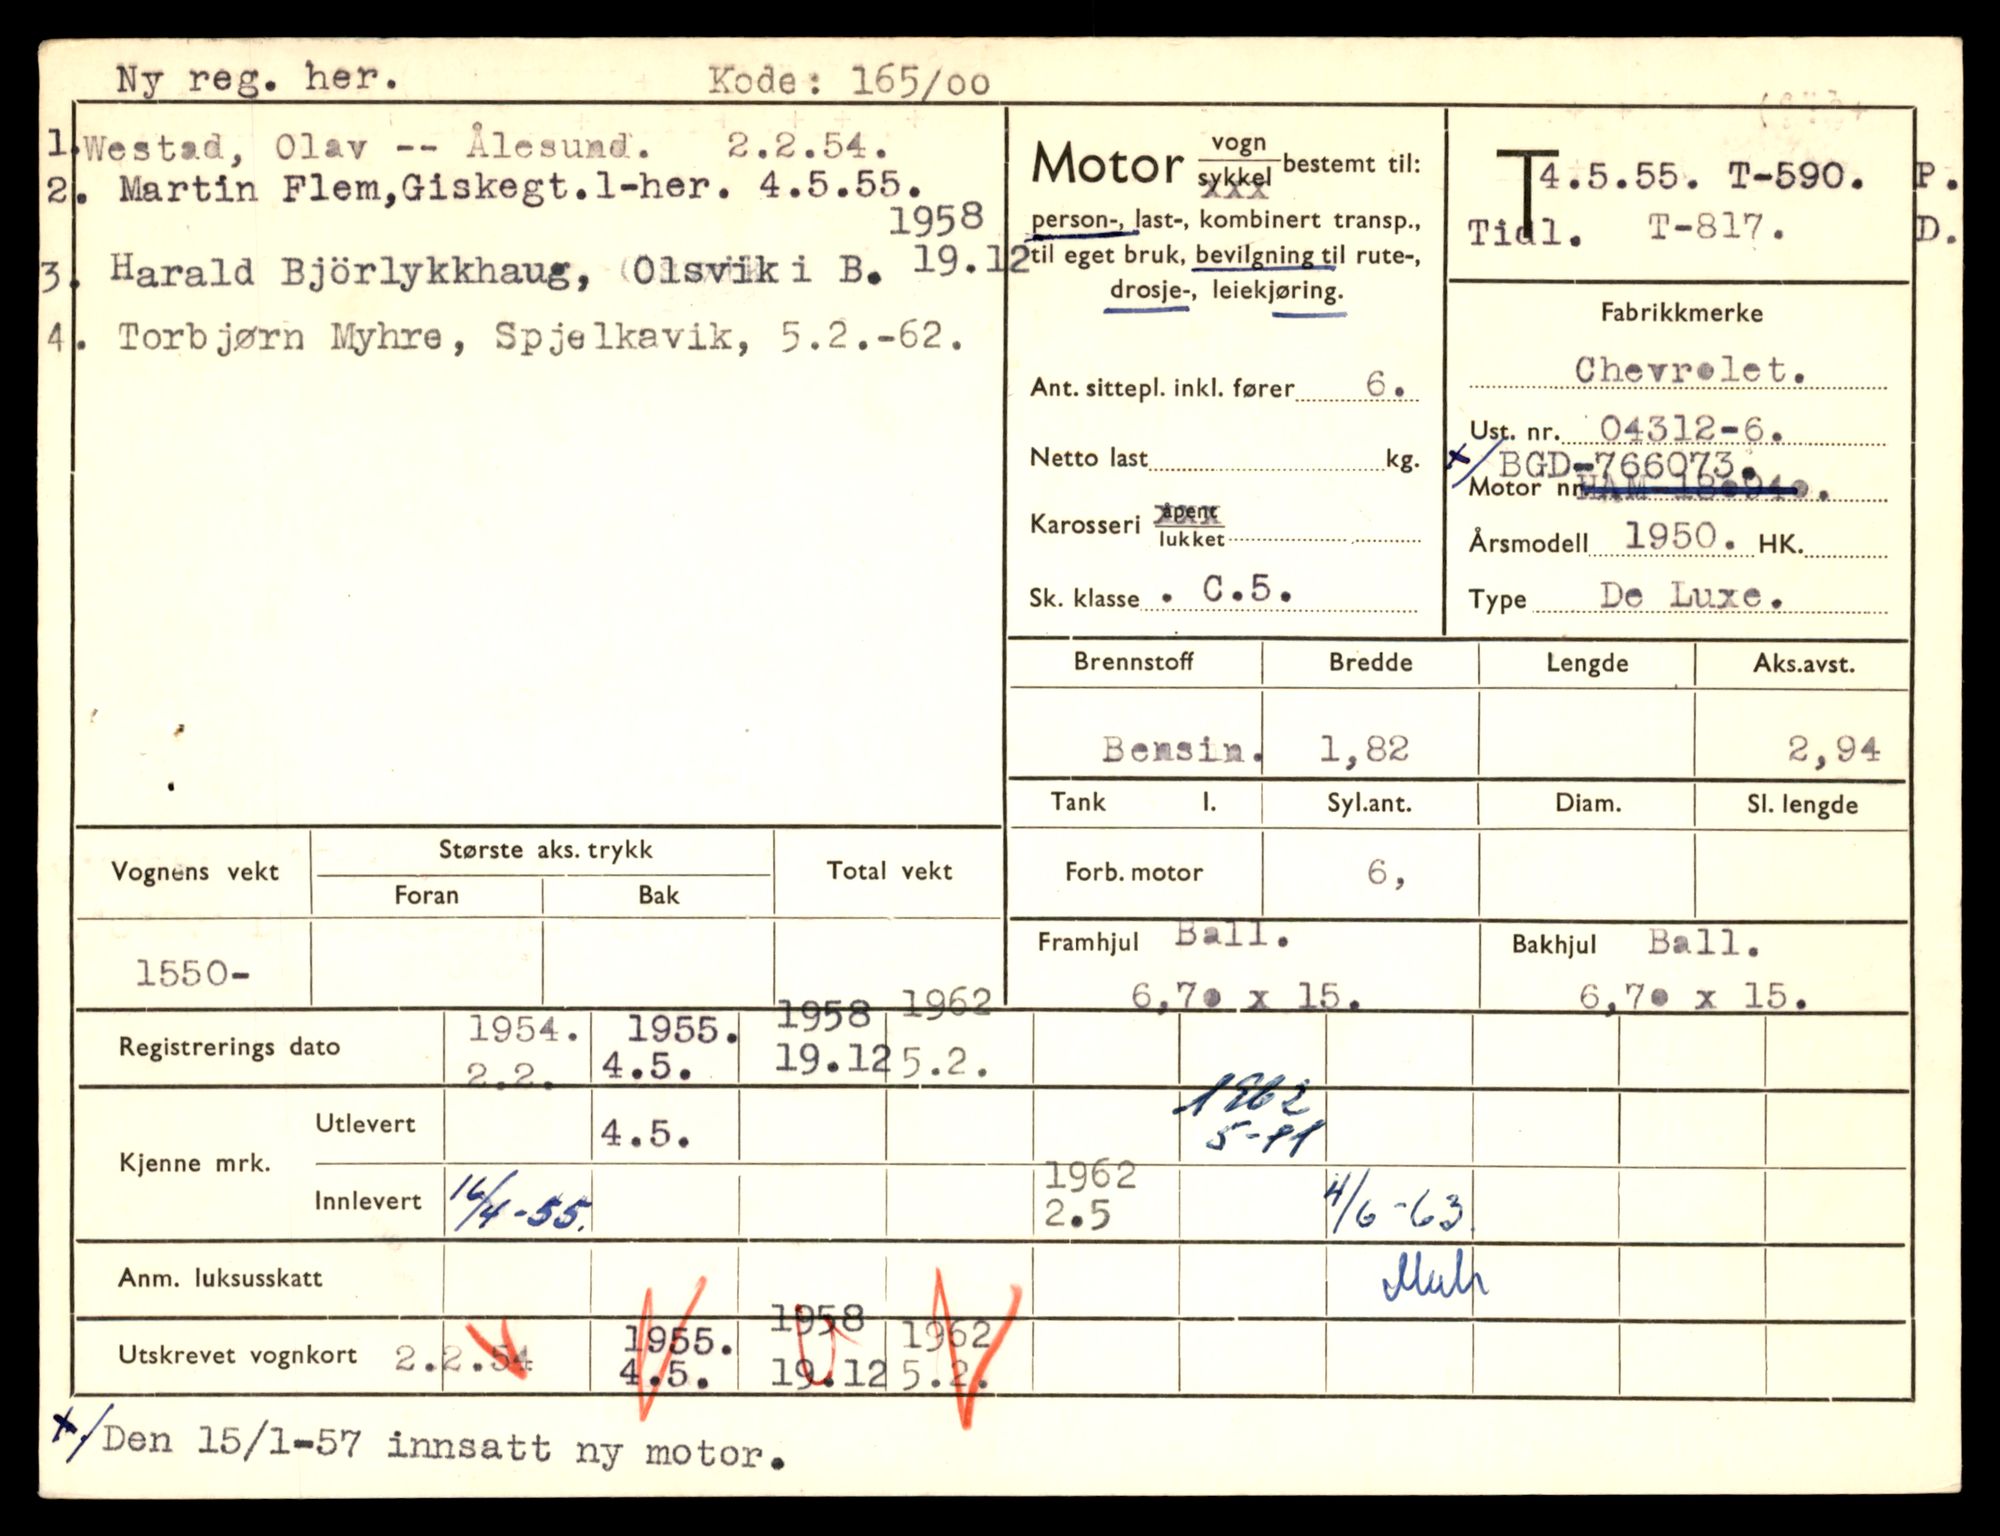 Ny reg. her. Kode: 165/oo
1. Westad, Olav -- Ålesund. 2.2.54.
2. Martin Flem,Giskegt.1-her. 4.5.55.
1958
3. Harald Björlykkhaug, Olsvik i B. 19.12
4. Torbjørn Myhre, Spjelkavik, 5.2.-62.
Motor vogn sykkel bestemt til:
person-, last-, kombinert transp.,
til eget bruk, bevilgning til rute-,
drosje-, leiekjøring.
Ant. sittepl. inkl. fører 6.
Netto last kg.
Karosseri åpent lukket
Sk. klasse . C.5.
T 4.5.55. T-590. P.
Tidl. T-817. D.
Fabrikkmerke
Chevrolet.
Ust. nr. 04312-6.
x/ BGD-766073.
Motor nr.
Årsmodell 1950. HK.
Type De Luxe.
Brennstoff Bredde Lengde Aks.avst.
Bensin. 1,82 2,94
Tank l. Syl.ant. Diam. Sl. lengde
Forb. motor 6,
Framhjul Ball. Bakhjul Ball.
6,7o x 15. 6,7o x 15.
Vognens vekt Største aks. trykk Total vekt
Foran Bak
1550-
Registrerings dato 1954. 1955. 1958 1962
2.2. 4.5. 19.12 5.2.
Kjenne mrk. Utlevert 4.5. 1962 5-11
Innlevert 16/4-55. 1962 2.5 4/6-63.
Anm. luksusskatt
Utskrevet vognkort 2.2.54 1955. 1958 1962
4.5. 19.12 5.2.
x/ Den 15/1-57 innsatt ny motor.